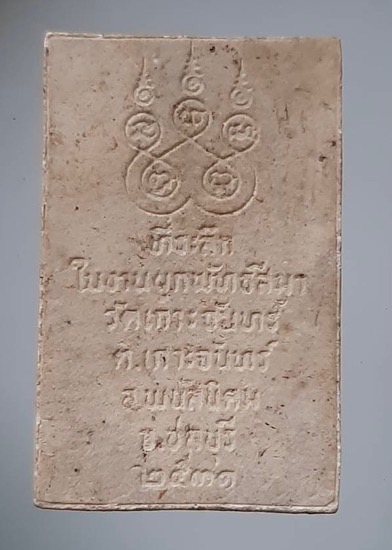 ที่ระลึก
ในงานผูกพัทธสีมา
วัดเกาะจันทร์
ต.เกาะจันทร์
อ.พนัสนิคม
จ.ชลบุรี
๒๕๓๑